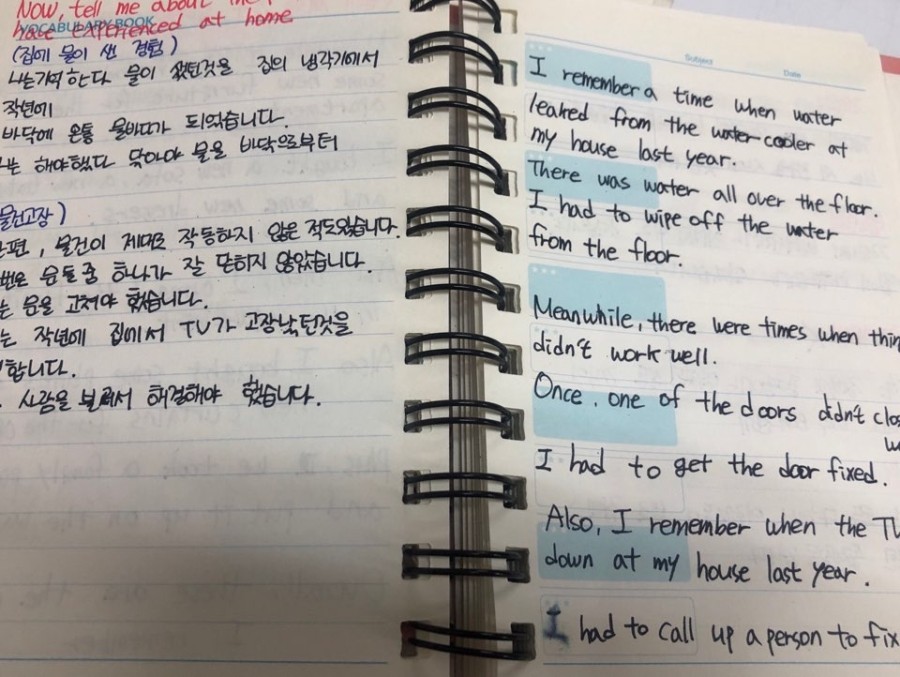 Now, tell me about the
have experienced at home
VOCABULARY BOOK
(집에 물이 샌 경험)
나는기억한다 물이 샜던것을 집의 냉각기에서
작년에
바닥에 온통 물바다가 되었습니다.
는 해야했다 닦아야 물을 바닥으로부터
물건고장)
한편, 물건이 제대로 작동하지 않은 적도있습니다.
번은 문들중 하나가 잘 닫히지 않았습니다.
는 문을 고쳐야 했습니다.
는 작년에 집에서 TV가 고장났던것을
합니다.
사람을 불러서 해결해야 했습니다.
Subject Date
I remember a time when water
leaked from the water cooler at
my house last year.
There was water all over the floor.
I had to wipe off the water
from the floor.
Meanwhile, there were times when thin
didn't work well.
Once, one of the doors didn't clos
w
I had to get the door fixed.
Also, I remember when the TV
down at my house last year.
I had to call up a person to fix